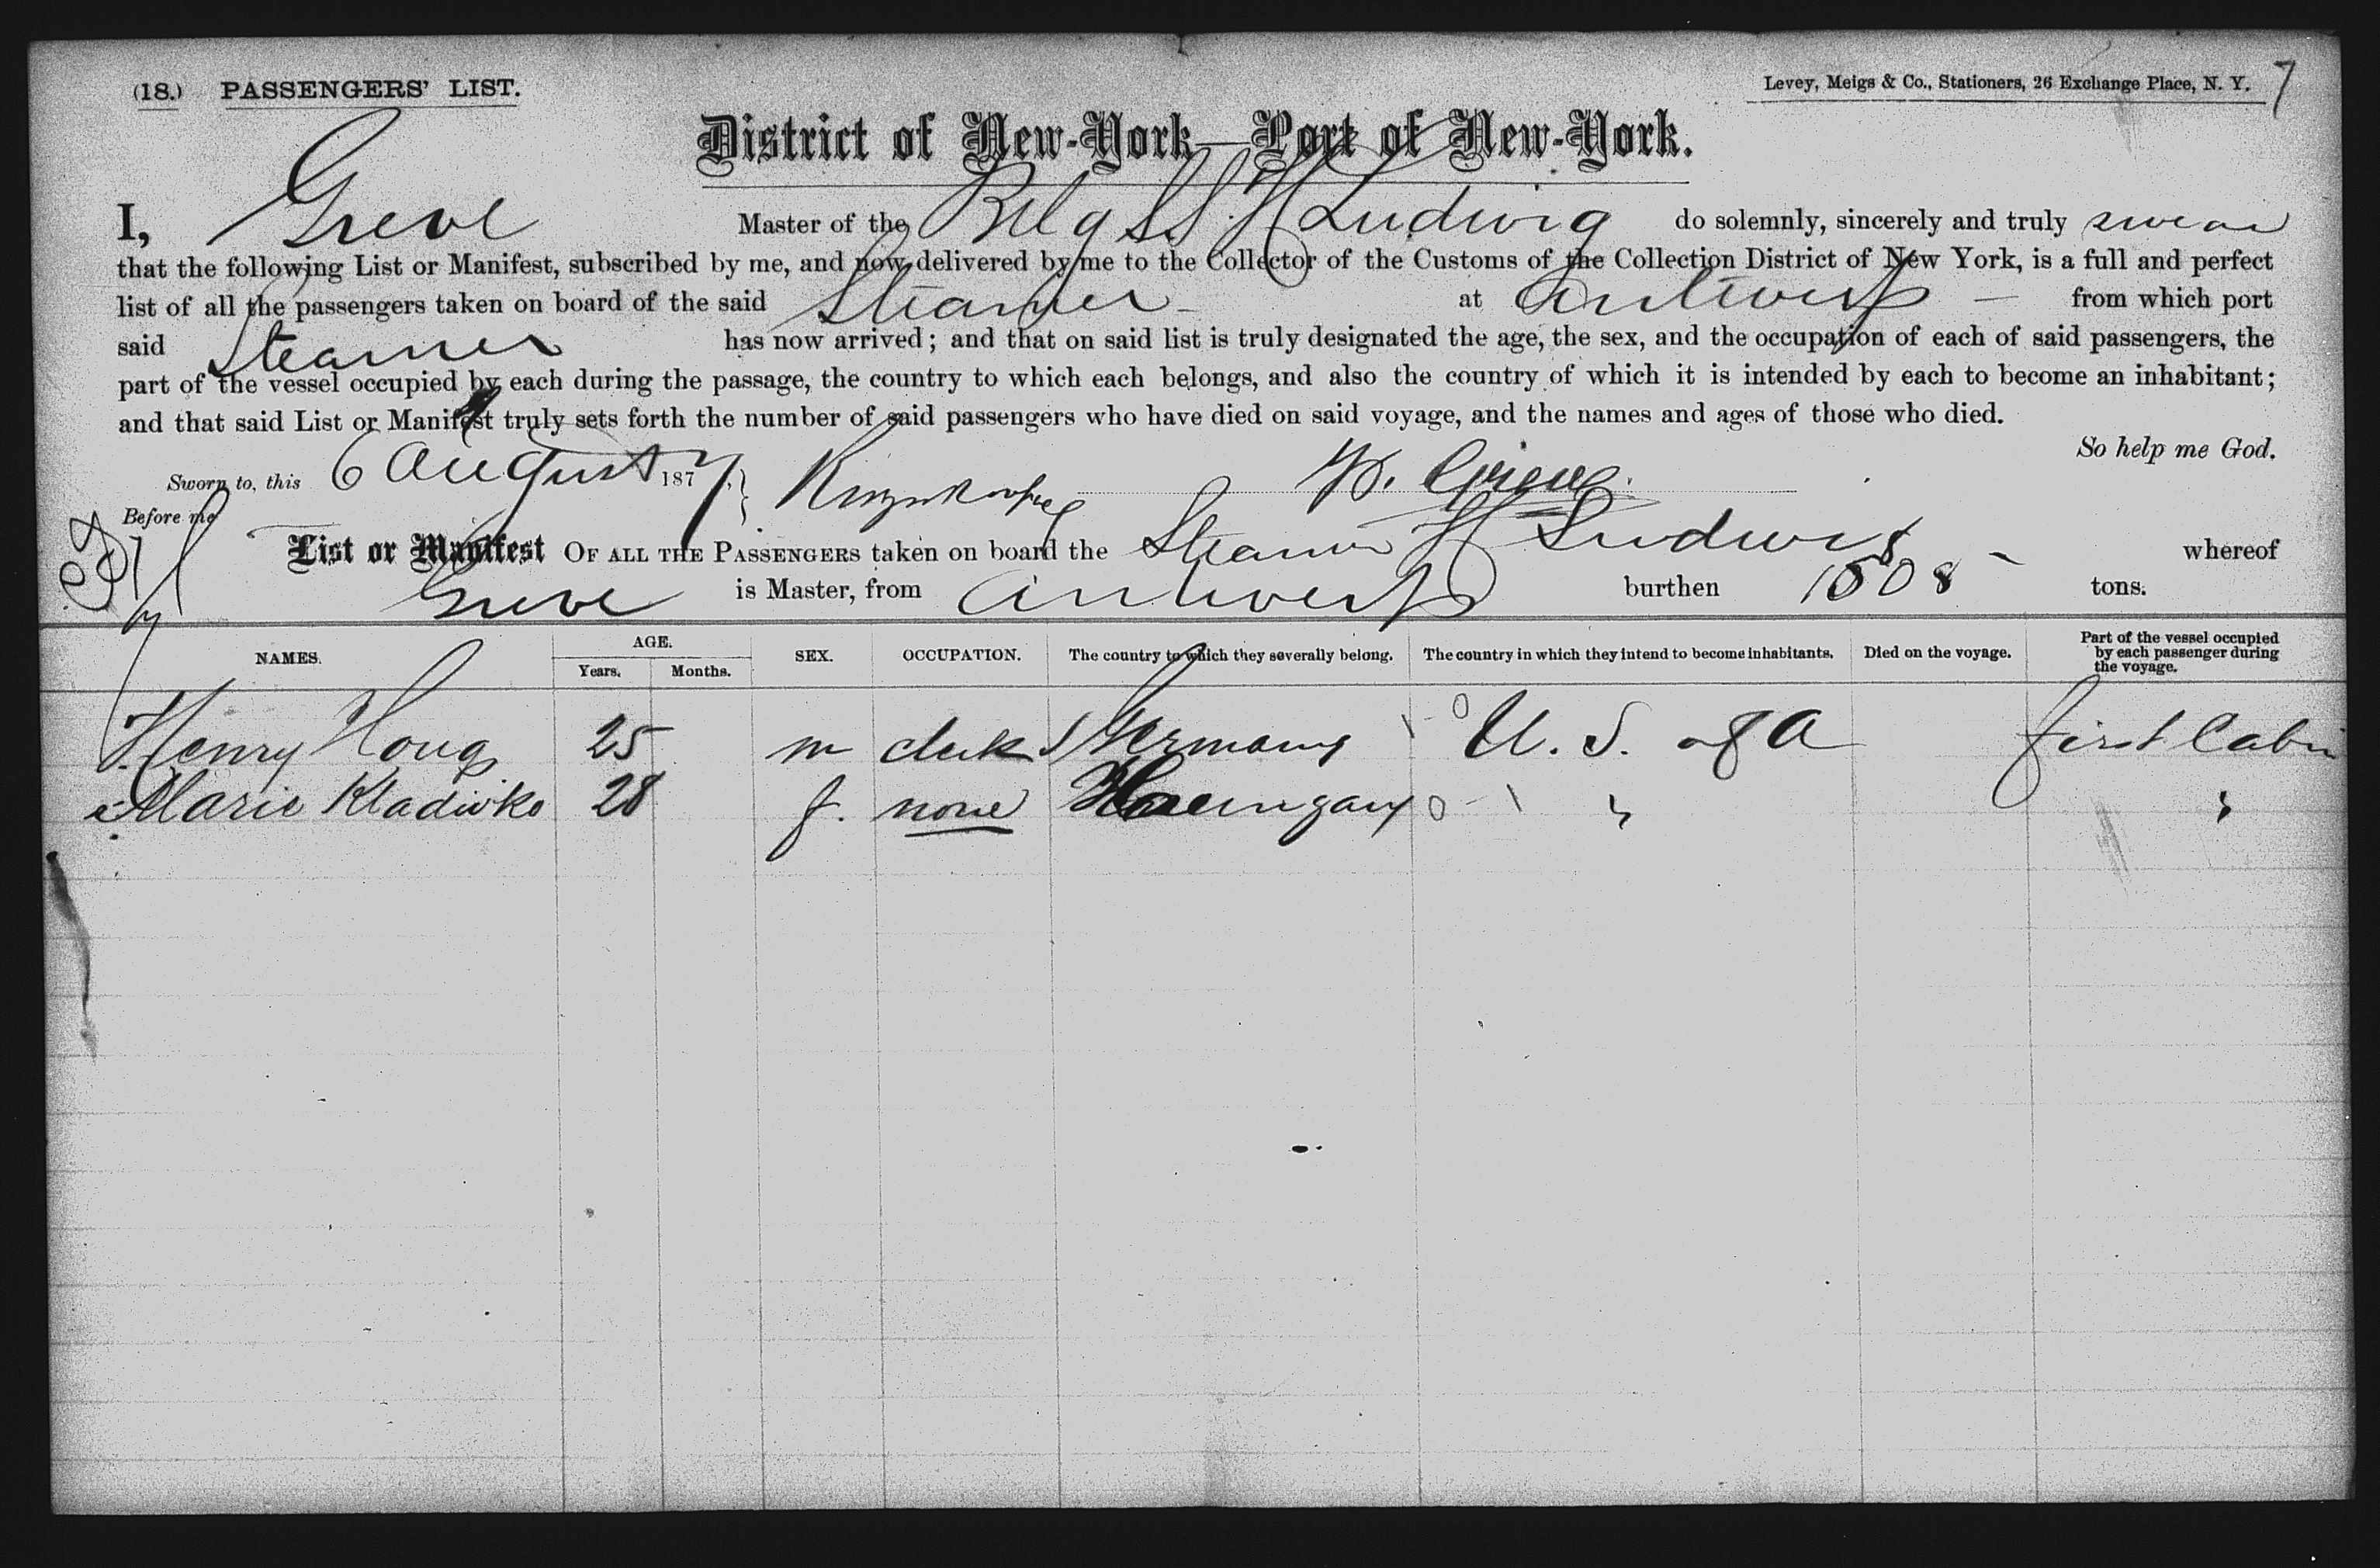 (18.) PASSENGERS' LIST.
Levey, Meigs & Co., Stationers, 26 Exchange Place, N. Y. 7
District of New-York—Port of New-York.
I, Greve Master of the Belg SS. H Ludwig do solemnly, sincerely and truly swear
that the following List or Manifest, subscribed by me, and now delivered by me to the Collector of the Customs of the Collection District of New York, is a full and perfect
list of all the passengers taken on board of the said Steamer at Antwerp — from which port
said Steamer has now arrived; and that on said list is truly designated the age, the sex, and the occupation of each of said passengers, the
part of the vessel occupied by each during the passage, the country to which each belongs, and also the country of which it is intended by each to become an inhabitant;
and that said List or Manifest truly sets forth the number of said passengers who have died on said voyage, and the names and ages of those who died.
So help me God.
Sworn to, this 6 August 1877 } W. Greve.
Before me
List or Manifest OF ALL THE PASSENGERS taken on board the Steamer H Ludwig - whereof
Greve is Master, from Antwerp burthen 1508 tons.
NAMES. AGE. Years. Months. SEX. OCCUPATION. The country to which they severally belong. The country in which they intend to become inhabitants. Died on the voyage. Part of the vessel occupied by each passenger during the voyage.
Henry 25 m clerk Germany U. S. of A first Cabin
Marie Kladivko 28 f. none Hungary " "